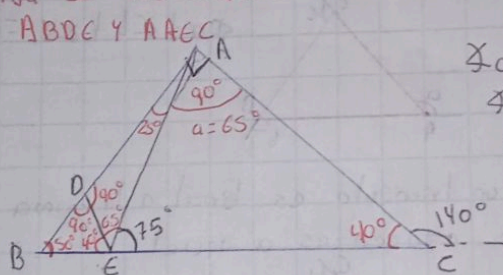 ABDE Y AAEC
A
90°
25°
a=65°
D
90°
90°
65°
75°
50°
40°
40°
140°
B
E
C